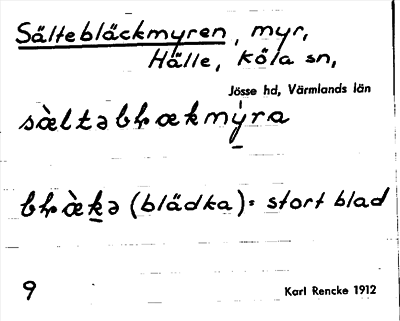 Sältebläckmyren, myr,
Hälle, Köla sn,
Jösse hd, Värmlands län
sæ̀ltəbɫækmỳ̱ra
bɫæ̀ḵə (blädka) = stort blad
9
Karl Rencke 1912